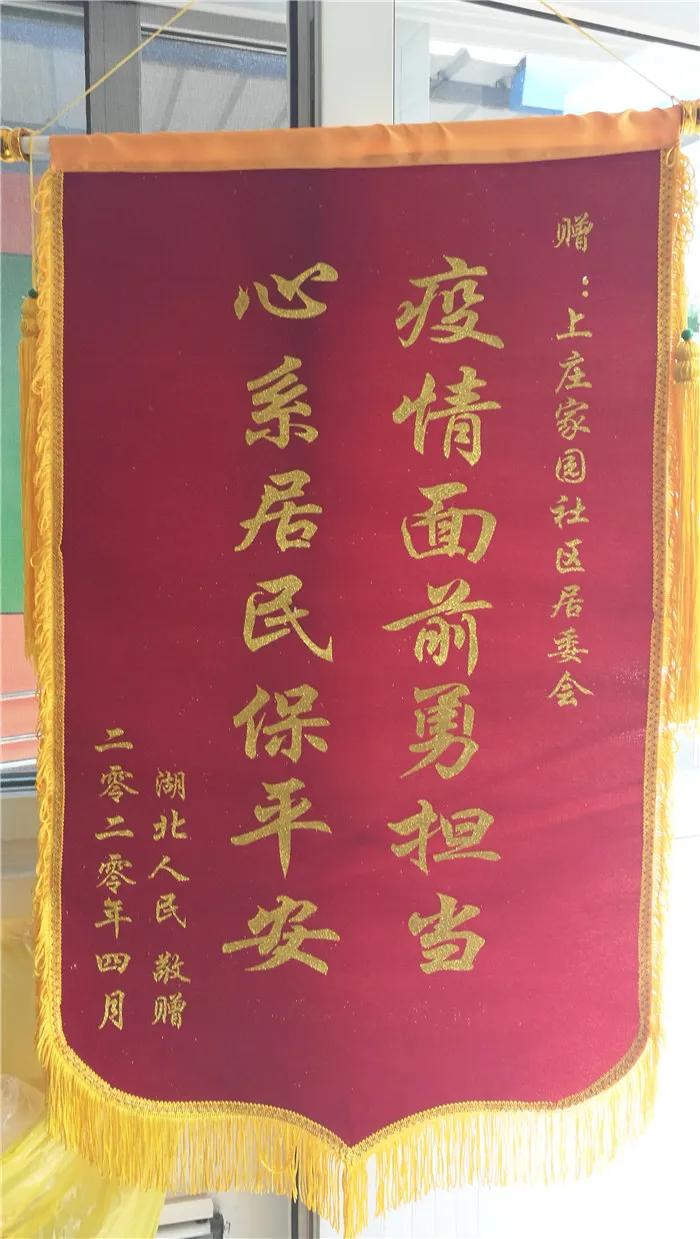 赠：上庄家园社区居委会
疫情面前勇担当
心系居民保平安
湖北人民 敬赠
二零二零年四月